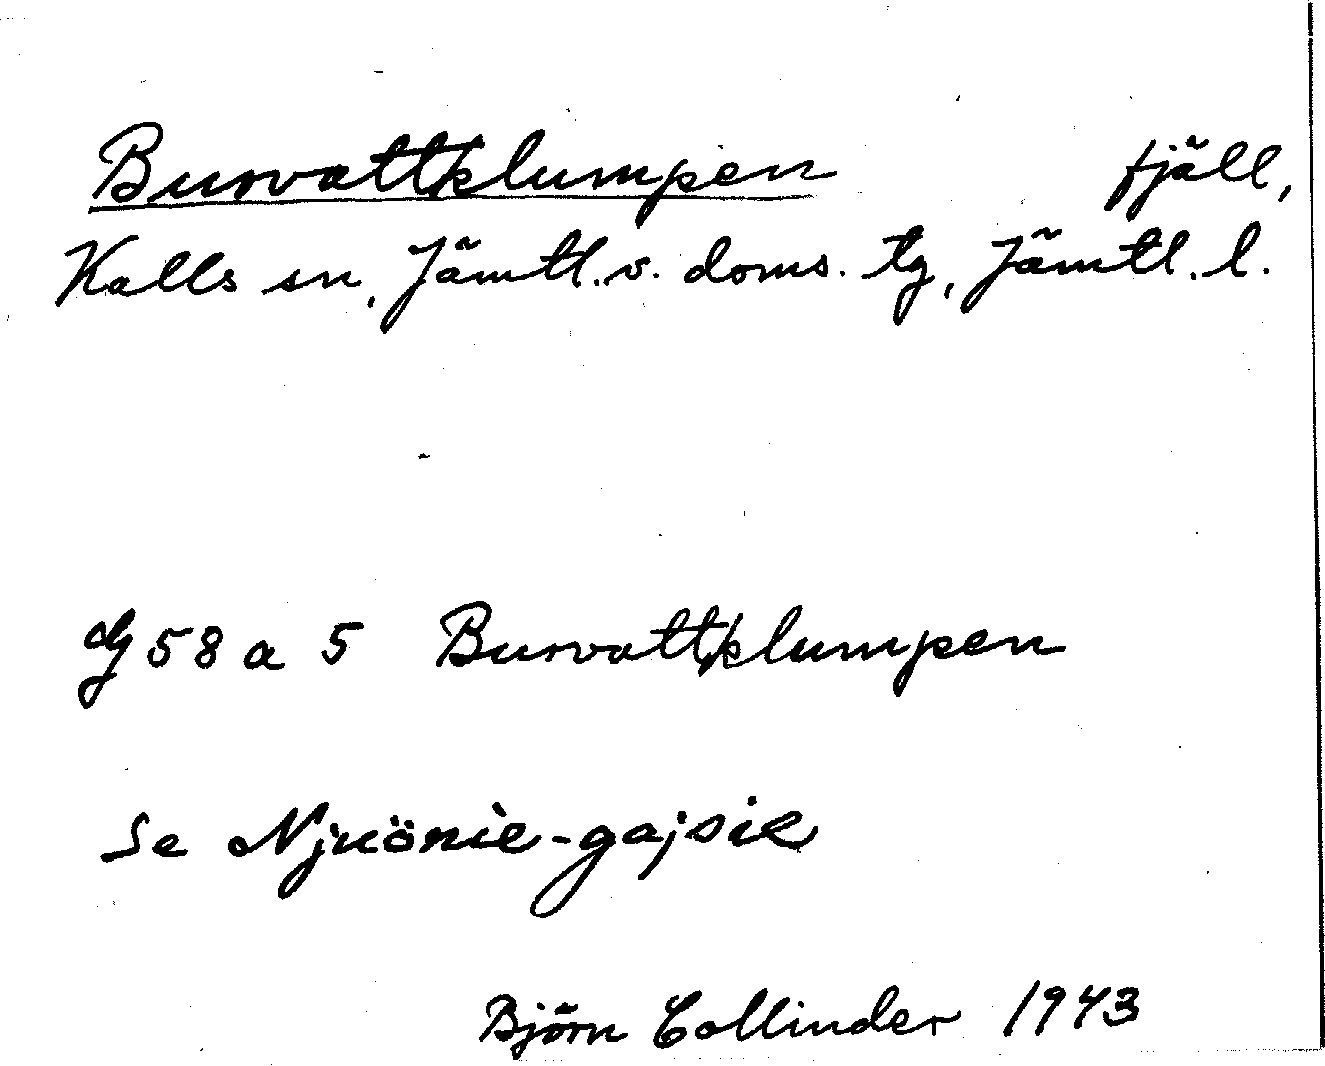 Burvattklumpen fjäll,
Kalls sn, Jämtl. v. doms. tg, Jämtl. l.
Gg 58 a 5 Burvattklumpen
Se Njuönie-gajsie
Björn Collinder 1943